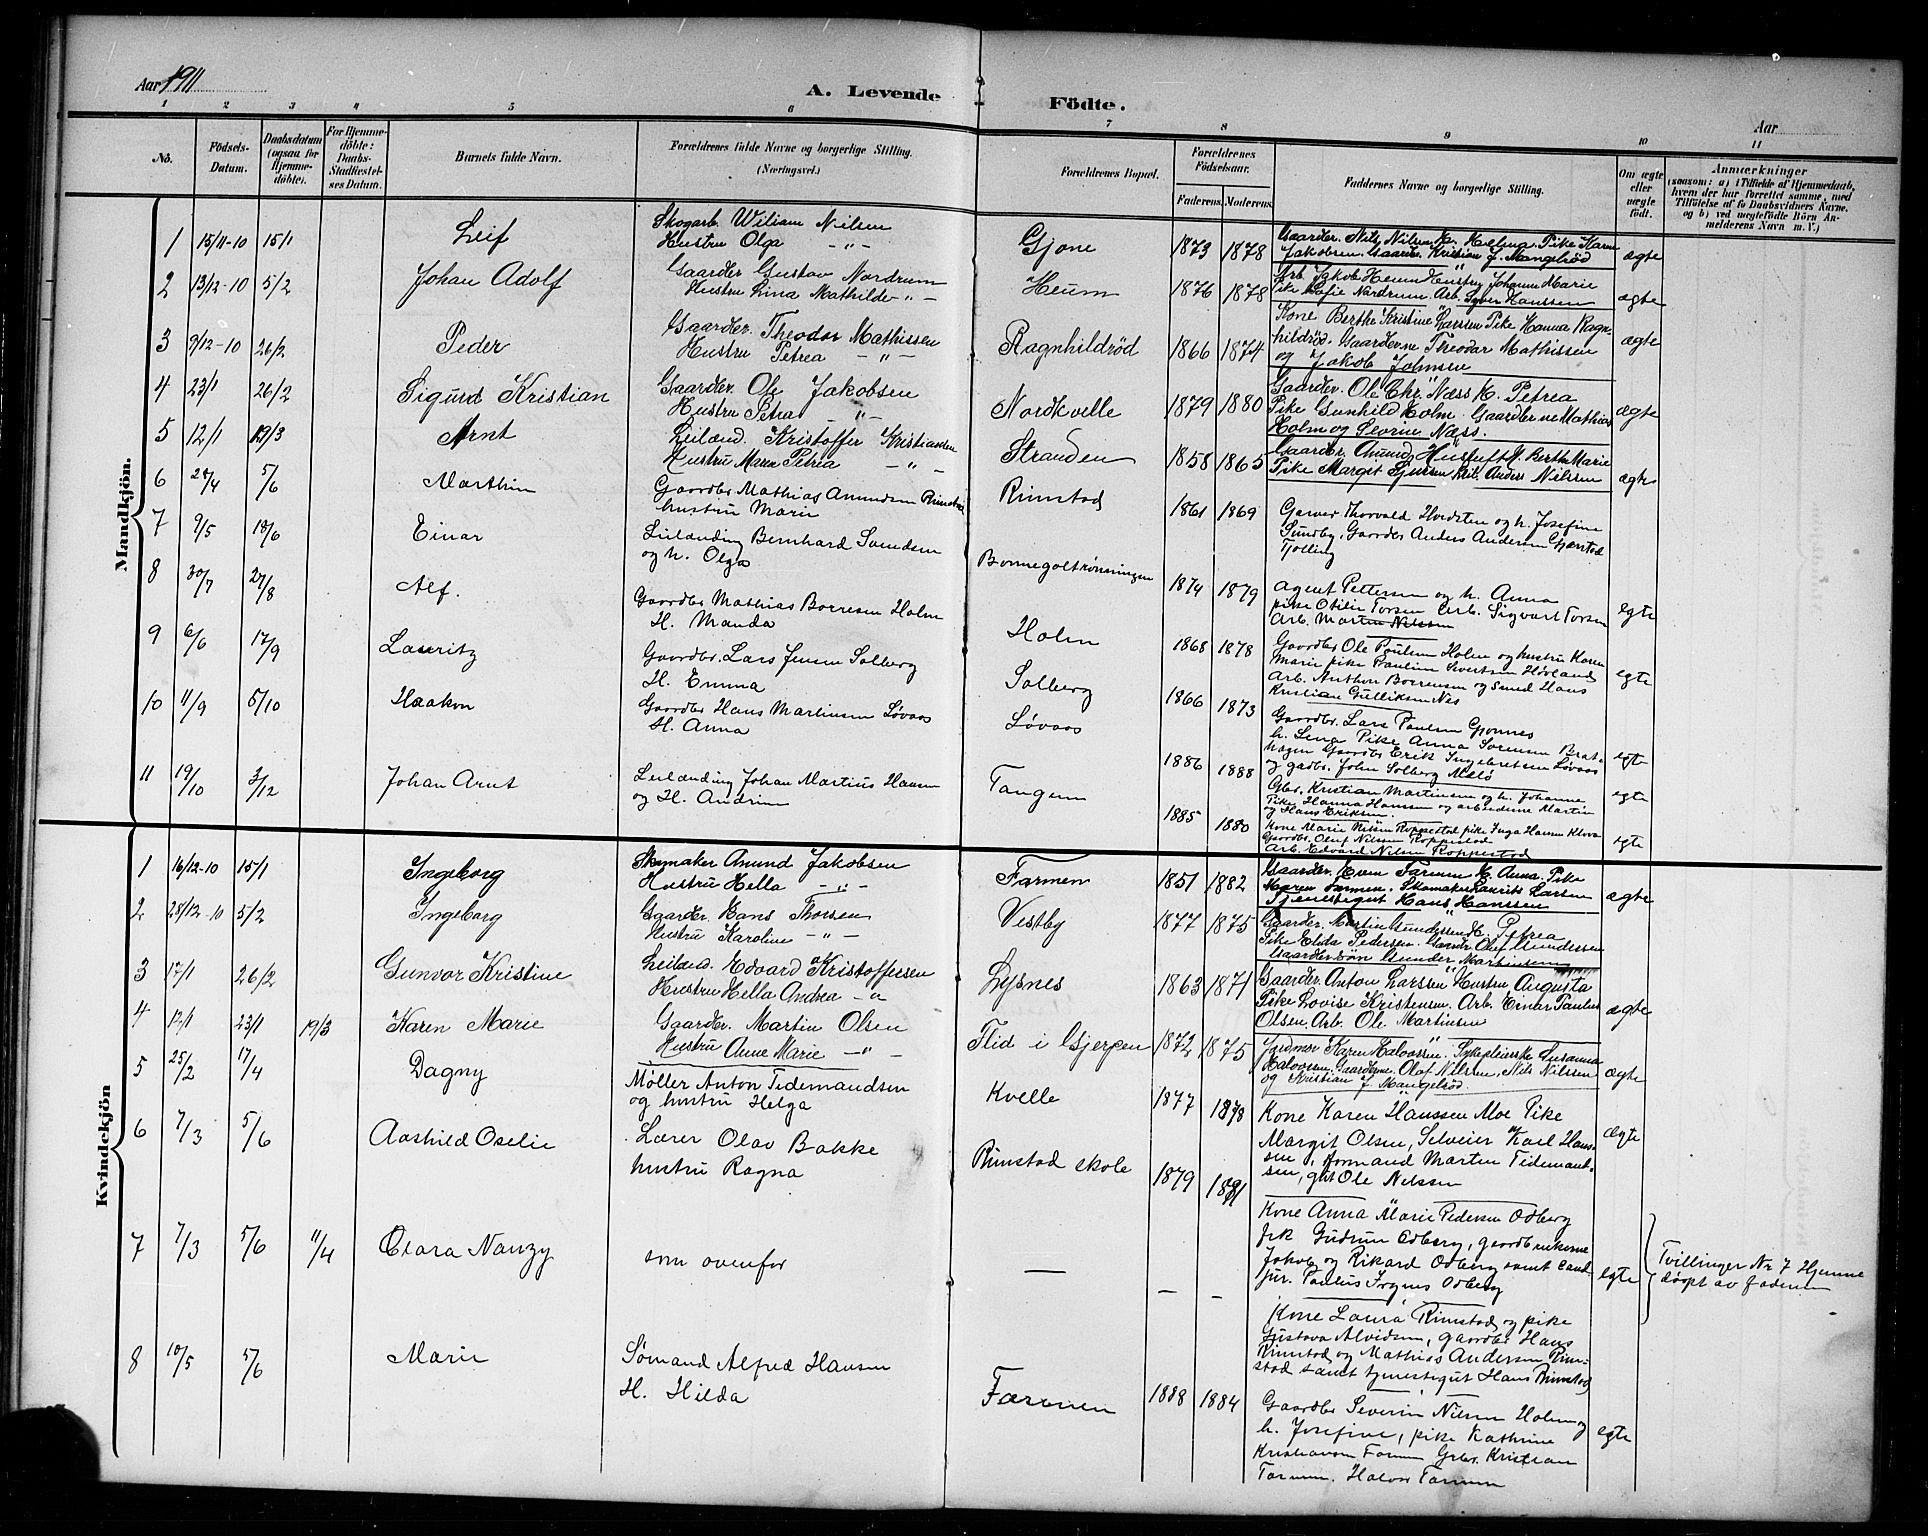 Aar 1911
A. Levende Födte.
Aar
1 2 3 4 5 6 7 8 9 10 11
No. Födsels-Datum. Daabsdatum (ogsaa for Hjemmedöbte). For Hjemmedöbte: Daabs-Stadfæstelses Datum. Barnets fulde Navn. Forældrenes fulde Navne og borgerlige Stilling. (Næringsvei.) Forældrenes Bopæl. Forældrenes Födselsaar. Faderens. Moderens. Faddernes Navne og borgerlige Stilling. Om ægte eller uægte födt. Anmærkninger (saasom: a) i Tilfælde af Hjemmedaab, hvem der har forrettet samme, med Tilföielse af to Daabsvidners Navne. og b) ved uægtefödte Börn Anmelderens Navn m. V.)
Mandkjön.
1 15/11-10 15/1 Leif Skogarb. Wiliam Nilsen
Hustru Olga -"- Gjone 1873 1878 Gaarder. Nils Nilsen K. Helma. Pike Karen
Jakobsen. Gaardr. Kristian J. Mangelrød ægte
2 13/12-10 5/2 Johan Adolf Gaarder Gustav Nordrum
Hustru Lina Mathilde -"- Heum 1876 1878 Arb. Jakob Heum Hustru Johanne Marie
Pike Sofie Nordrum. Arb. Syver Hanssen ægte
3 9/12-10 26/2 Peder Gaarder. Theodor Mathissen
Hustru Petrea -"- Ragnhildrød 1866 1874 Kone Berthe Kristine Larssen Pike Hanna Ragn-
hildrød. Gaarderne Theodor Mathissen
og Jakob Johnsen ægte
4 23/1 26/2 Sigurd Kristian Gaarder. Ole Jakobsen
Hustru Petra -"- Nordkvelle 1879 1880 Gaarder. Ole Chr. Næss K. Petrea
Pike Gunhild Holm. Gaarderne Mathias
Holm og Severin Næss. ægte
5 12/1 19/3 Arnt Leilænd. Kristoffer Kristiansen
Hustru Maren Petrea -"- Stranden 1858 1865 Gaarder Amund Hustuft H. Berthe Marie
Pike Margit Leil. Anders Nilssen ægte
6 24/4 5/6 Marthin Gaardbr Mathias Amundsen Rimstad
hustru Marie Rimstad 1861 1869 Garver Thorvald Hvidsten og h. Josefine
Sundby, Gaardbr Anders Andersen Gjærstad
Tjølling
7 9/5 18/6 Einar Leilænding Bernhard Svendsen
og h. Olga Bonnegoltrønningen 1874 1879 Agent Pettersen og h. Anna
pike Otilie Torsen Arb. Sigvart Torsen
Arb. Martin Nilssen egte
8 30/7 27/8 Alf. Gaardbr Mathias Borresen Holm
H. Manda Holm 1868 1878 Gaardbr Ole Paulsen Holm og hustru Karen
Marie pike Pauline Svertsen Hovland
Arb. Anthon Borresen og Smed Hans
Kristian Gulliksen Næs egte
9 6/6 17/9 Lauritz Gaardbr. Lars Jensen Solberg
H. Emma Solberg 1866 1873 Gaardbr. Lars Paulsen Gjønnes
h. Lena Pike Anna Sorensen Brat-
hagen Gaardbr Erik Ingebretsen Løvaas
og gadbr. John Solberg Melø egte
10 11/9 5/10 Haakon Gaardbr Hans Martinsen Løvaas
H. Anna Løvaas 1886 1888 Gbr. Kristian Martinsen og h. Johanne,
Pike Hanna Hansen og arbeiderne Martin
og Hans Eriksen. egte
11 19/10 3/12 Johan Arnt Leilænding Johan Martius Hansen
og H. Andrine Tangen 1885 1880 Kone Marie Nilsen Roppestad pike Inga Hansen Klova
Gaardbr. Oluf Nilsen Roppestad
Arb. Edvard Nilsen Roppestad egte
Kvindekjön
1 16/12-10 15/1 Ingeborg Skomaker Amund Jakobsen
Hustru Hella -"- Farmen 1851 1882 Gaarder. Even Farmen K. Anna. Pike
Maren Farmen. Skomaker Laurits Larsen
Tjenestegut Hans Hanssen ægte
2 28/12-10 5/2 Ingeborg Gaarder. Hans Thorsen
Hustru Karoline -"- Vestby 1877 1875 Gaarder. Martin Gundersen H. Petrea
Pike Elida Pedersen. Gaarder Olaf Gundersen
Gaardersøn Gunder Martinsen
3 17/1 26/2 Gunvor Kristine Leilænd. Edvard Kristoffersen
Hustru Hella Andrea -"- Lysnes 1863 1871 Gaarder. Anton Larssen Hustru Augusta
Pike Lovise Kristensen. Arb. Einar Paulus
Olsen. Arb. Ole Martinsen ægte
4 12/1 23/1 19/3 Karen Marie Gaarder. Martin Olsen
Hustru Anne Marie -"- Flid i Gjerpen 1872 1875 Jordmor Karen Halvorsen. Sykepleierske Susanna
Halvorsen. Gaarderne Olaf Nilsen, Nils Nilssen
og Kristian J. Mangelrød. ægte
5 25/2 17/4 Dagny Møller Anton Tidemandsen
og hustru Helga Kvelle 1877 1878 Kone Karen Hanssen Moe Pike
Margit Olsen, Selveier Karl Hans-
sen, Formand Marten Tidemand-
sen, gut Ole Nilssen ægte
6 7/3 5/6 Aashild Oselie Lærer Olav Bakke
hustru Ragna Rimstad skole 1879 1881 Kone Anna Marie Pedersen Odberg
frk Gudrun Odberg, gaardbrukerne
Jakob og Rikard Odberg samt Cand
jur. Paulus Odberg egte
7 7/3 5/6 11/4 Clara Nanzy som ovenfor — — — Kone Laura Rimstad, og pike
Gustava Alvidsen, gaardbr Hans
Rimstad og Mathias Andersen Rim-
stad samt tjenestegut Hans Rimstad
Tvillinger Nr 7 Hjemme
døpt av faderen
8 10/5 5/6 Marie Sømand Alfred Hansen
H. Hilda Farmen 1888 1884 Gaardbr Severin Nilsen Holm og
h. Josefine, pike Kathrine
Kristiansen Farmen Gbr. Kristian
Farmen. Halvor Farmen egte